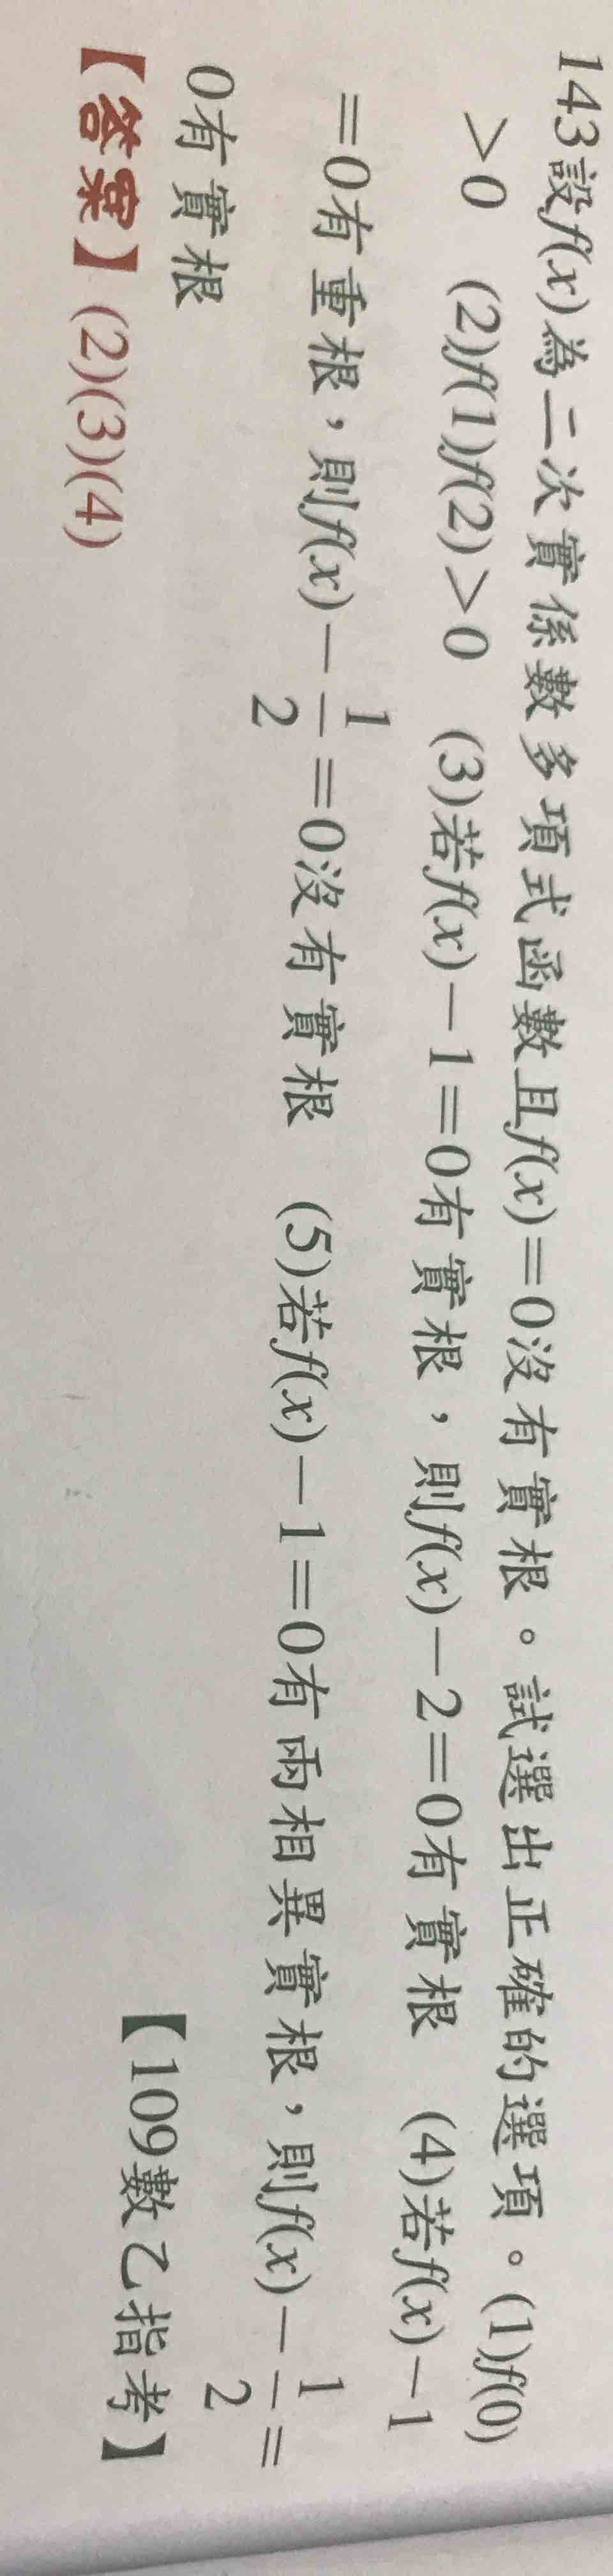 143設f(x)為二次實係數多項式函數且f(x)=0沒有實根。試選出正確的選項。(1)f(0)
>0 (2)f(1)f(2)>0 (3)若f(x)-1=0有實根,則f(x)-2=0有實根 (4)若f(x)-1
=0有重根,則f(x)-1/2=0沒有實根 (5)若f(x)-1=0有兩相異實根,則f(x)-1/2=
0有實根
【109數乙指考】
【答案】(2)(3)(4)